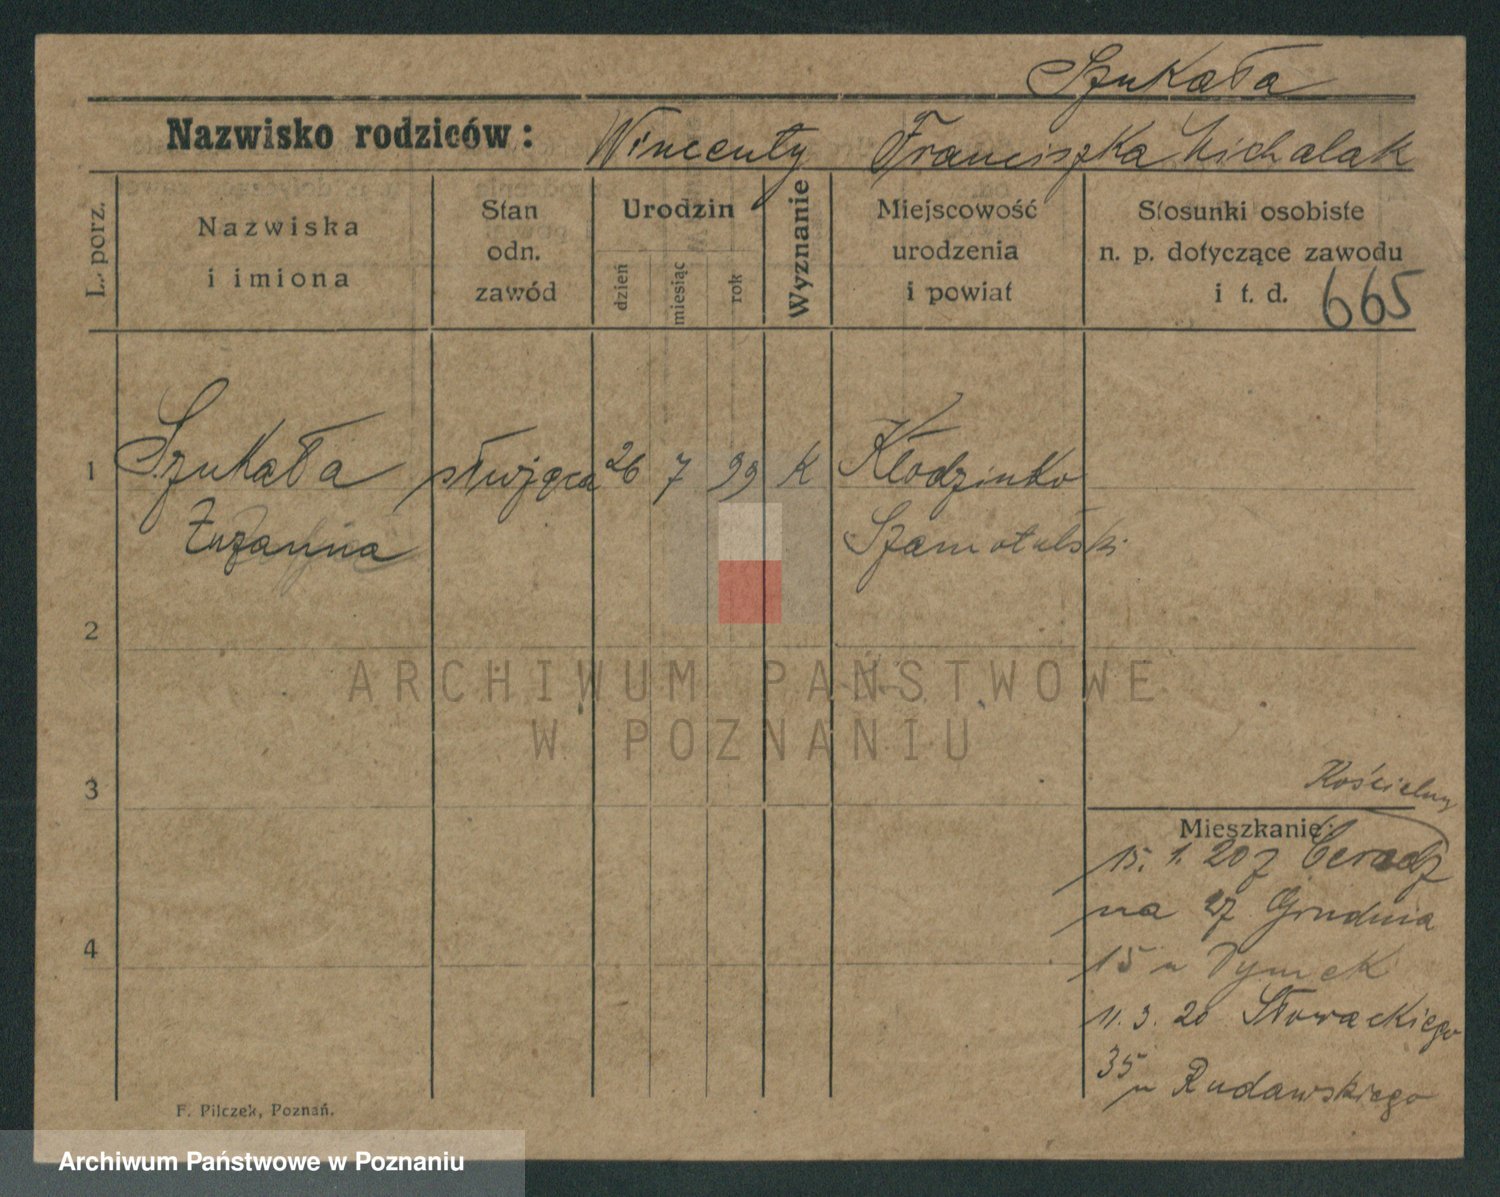 Szukała
Nazwisko rodziców: Wincenty Franciszka Michalak
L. porz.
Nazwiska
i imiona
Stan
odn.
zawód
Urodzin
dzień
miesiąc
rok
Wyznanie
Miejscowość
urodzenia
i powiat
Stosunki osobiste
n. p. dotyczące zawodu
i t. d. 665
1 Szukała służąca 26 7 99 K Kłodzinko
Zuzanna Szamotulski
2
ARCHIWUM PAŃSTWOWE
W POZNANIU
3
Kościelny
Mieszkanie:
15. 1. 20 z Ceradz
na 27 Grudnia
15 u Dymek
4
11. 3. 20 Słowackiego
35 u Rudawskiego
F. Pilczek, Poznań.
Archiwum Państwowe w Poznaniu